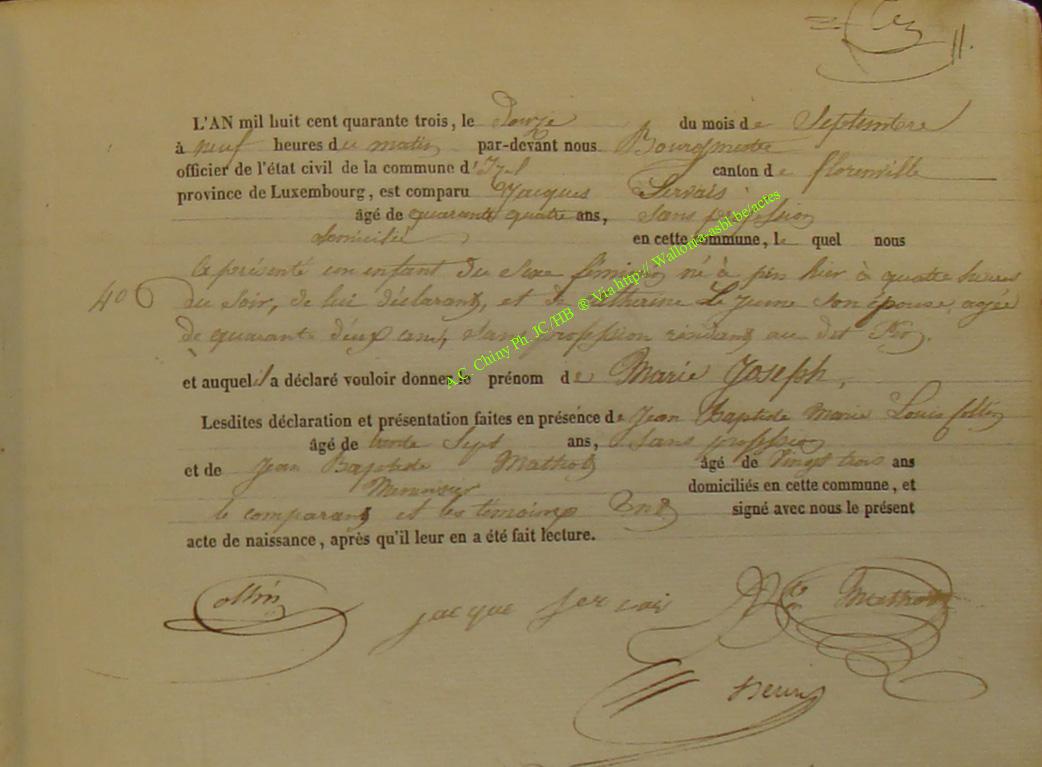 11.
L'AN mil huit cent quarante trois, le Douze du mois de Septembre
à neuf heures du matin par-devant nous Bourgmestre
officier de l'état civil de la commune d'Izel canton de florenville
province de Luxembourg, est comparu Jacques Servais
âgé de quarante quatre ans, sans profession
domicilié en cette commune, le quel nous
40
a présenté un enfant du sexe féminin né à pin hier à quatre heures
du soir, de lui déclarant, et de Catherine Le Jeune son épouse, agée
de quarante deux ans, sans profession résidant au dit
et auquel il a déclaré vouloir donner le prénom de Marie Joseph,
Lesdites déclaration et présentation faites en présence de Jean Baptiste Marie Louis Collin
âgé de trente Sept ans, sans profession
et de Jean Baptiste Mathot âgé de vingt trois ans
Menuisier domiciliés en cette commune, et
le comparant et les témoins ont signé avec nous le présent
acte de naissance, après qu'il leur en a été fait lecture.
Collin jacque Servais Mathot
A.C. Chiny Ph. JC/HB ® Via http://Wallonia-asbl.be/actes